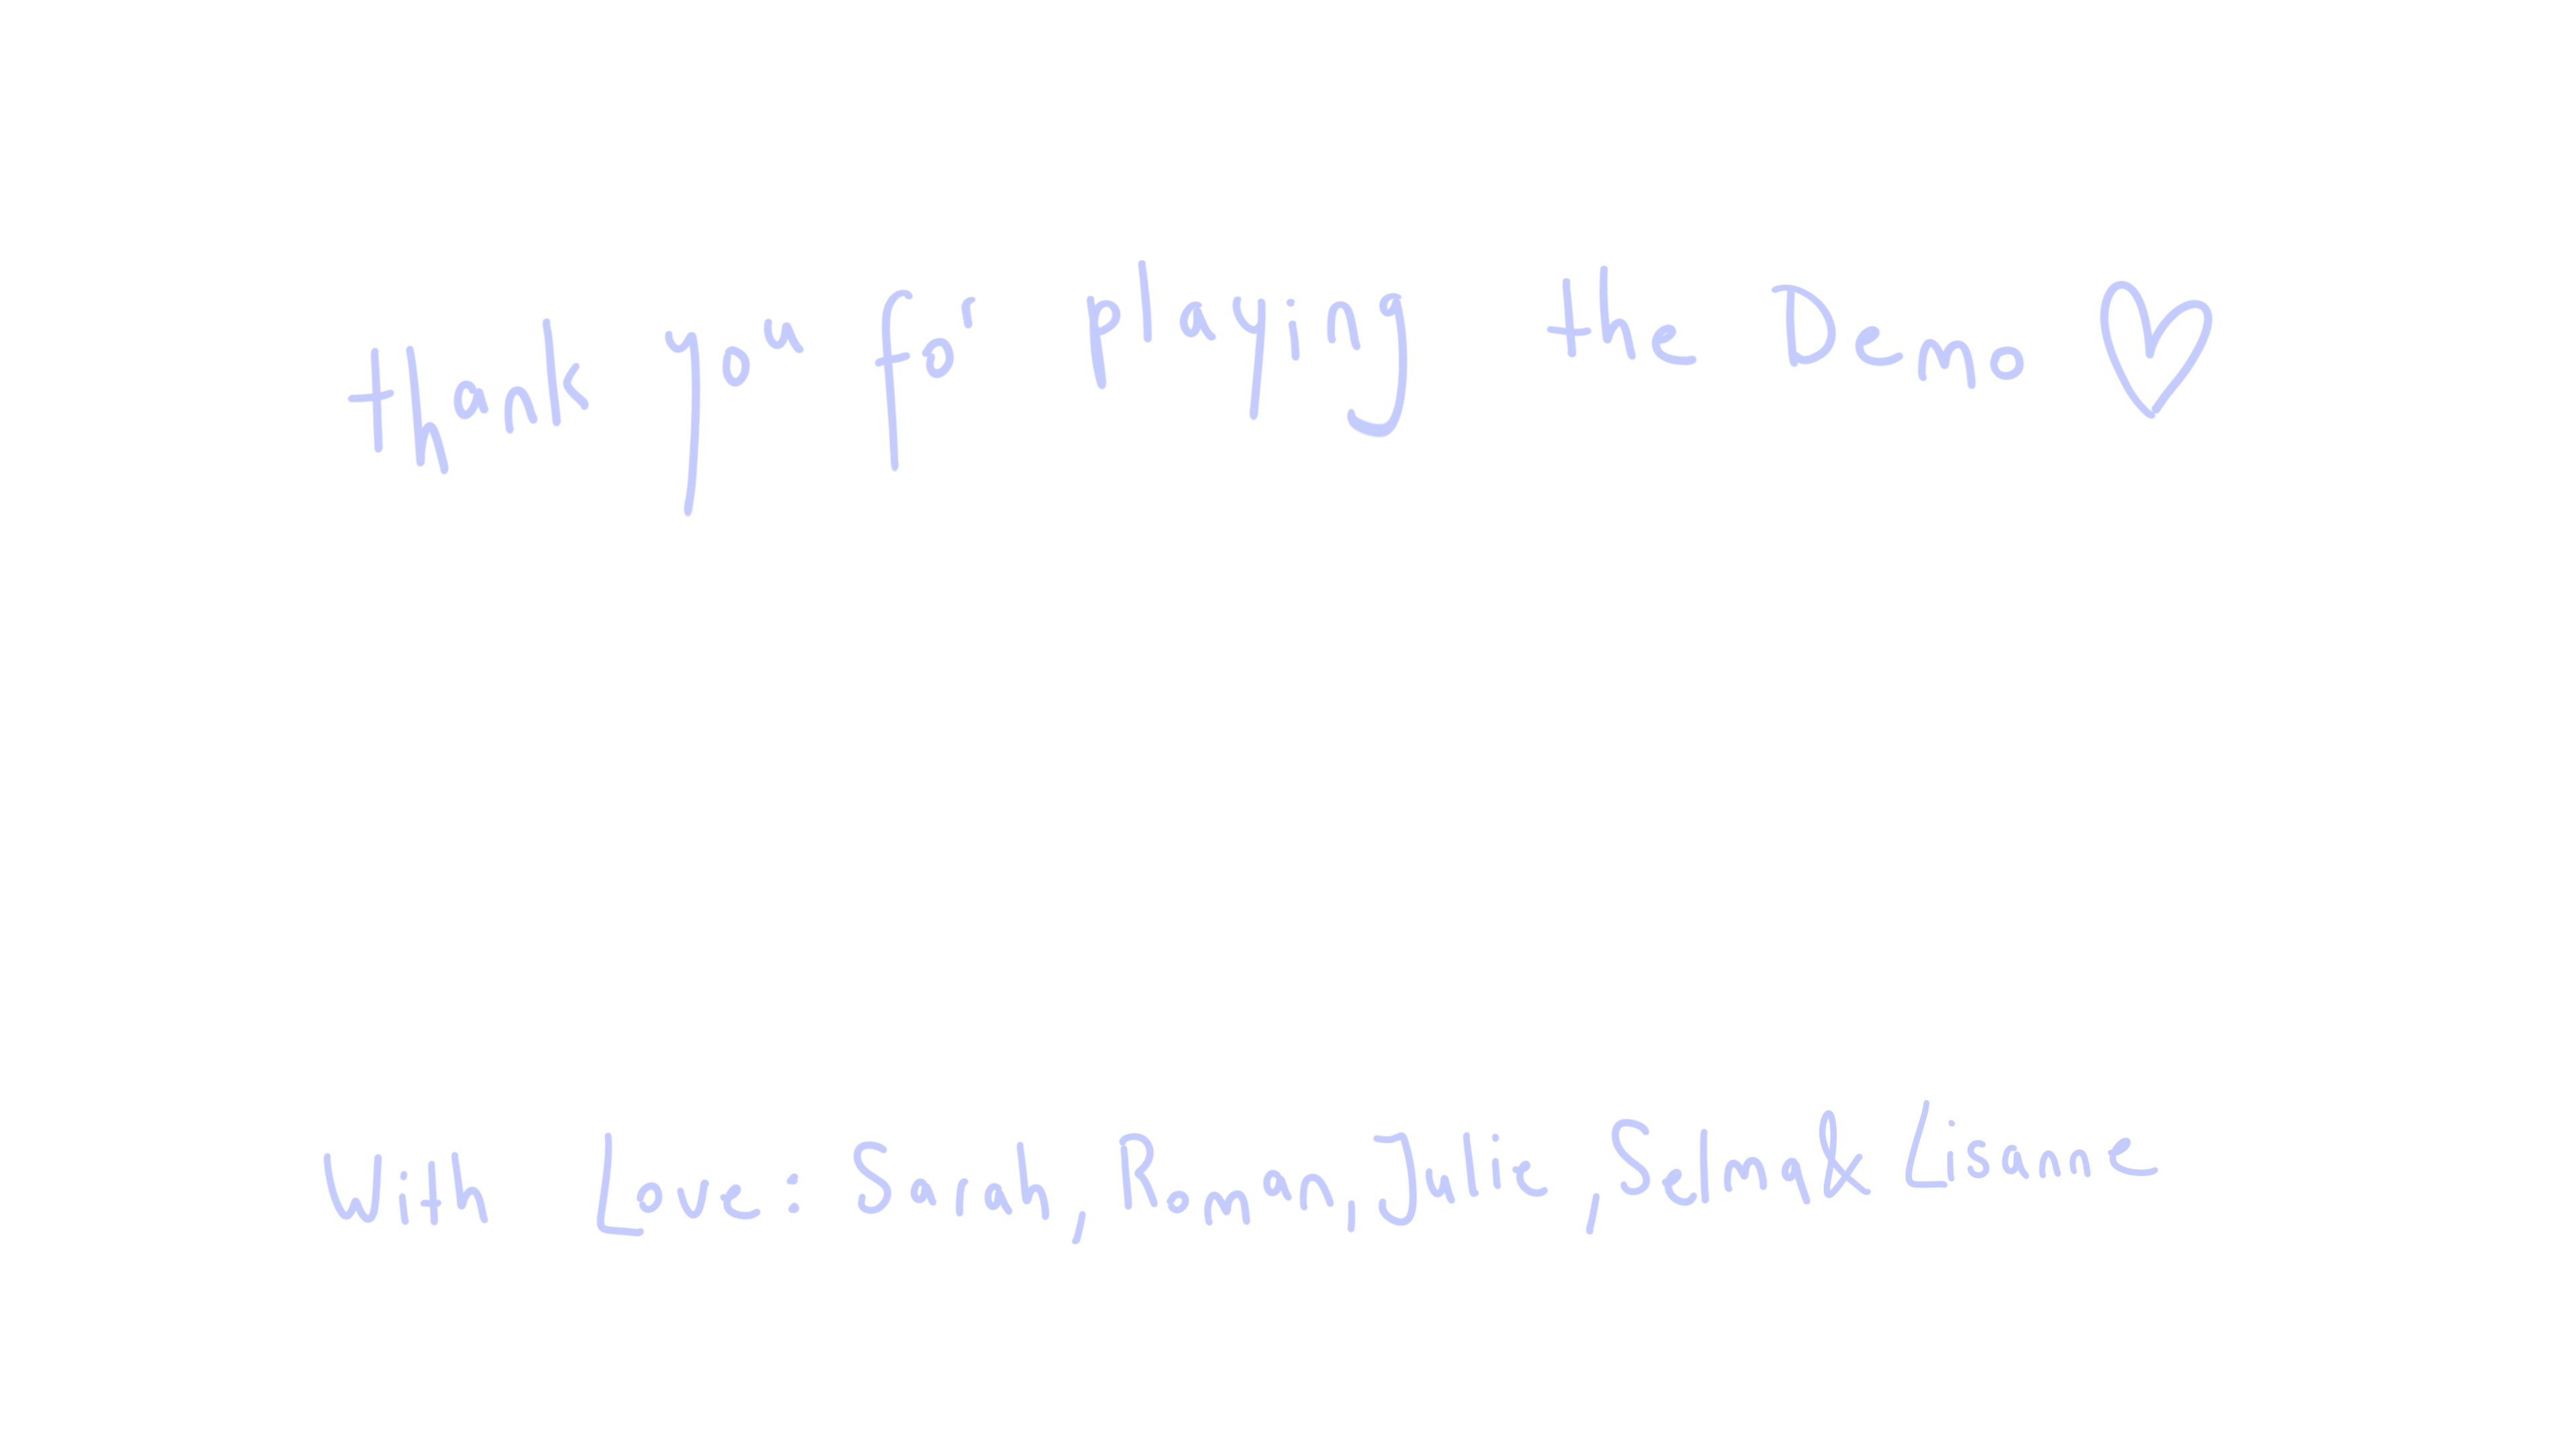 thank you for playing the Demo ♡
With Love: Sarah, Roman, Julie, Selma & Lisanne